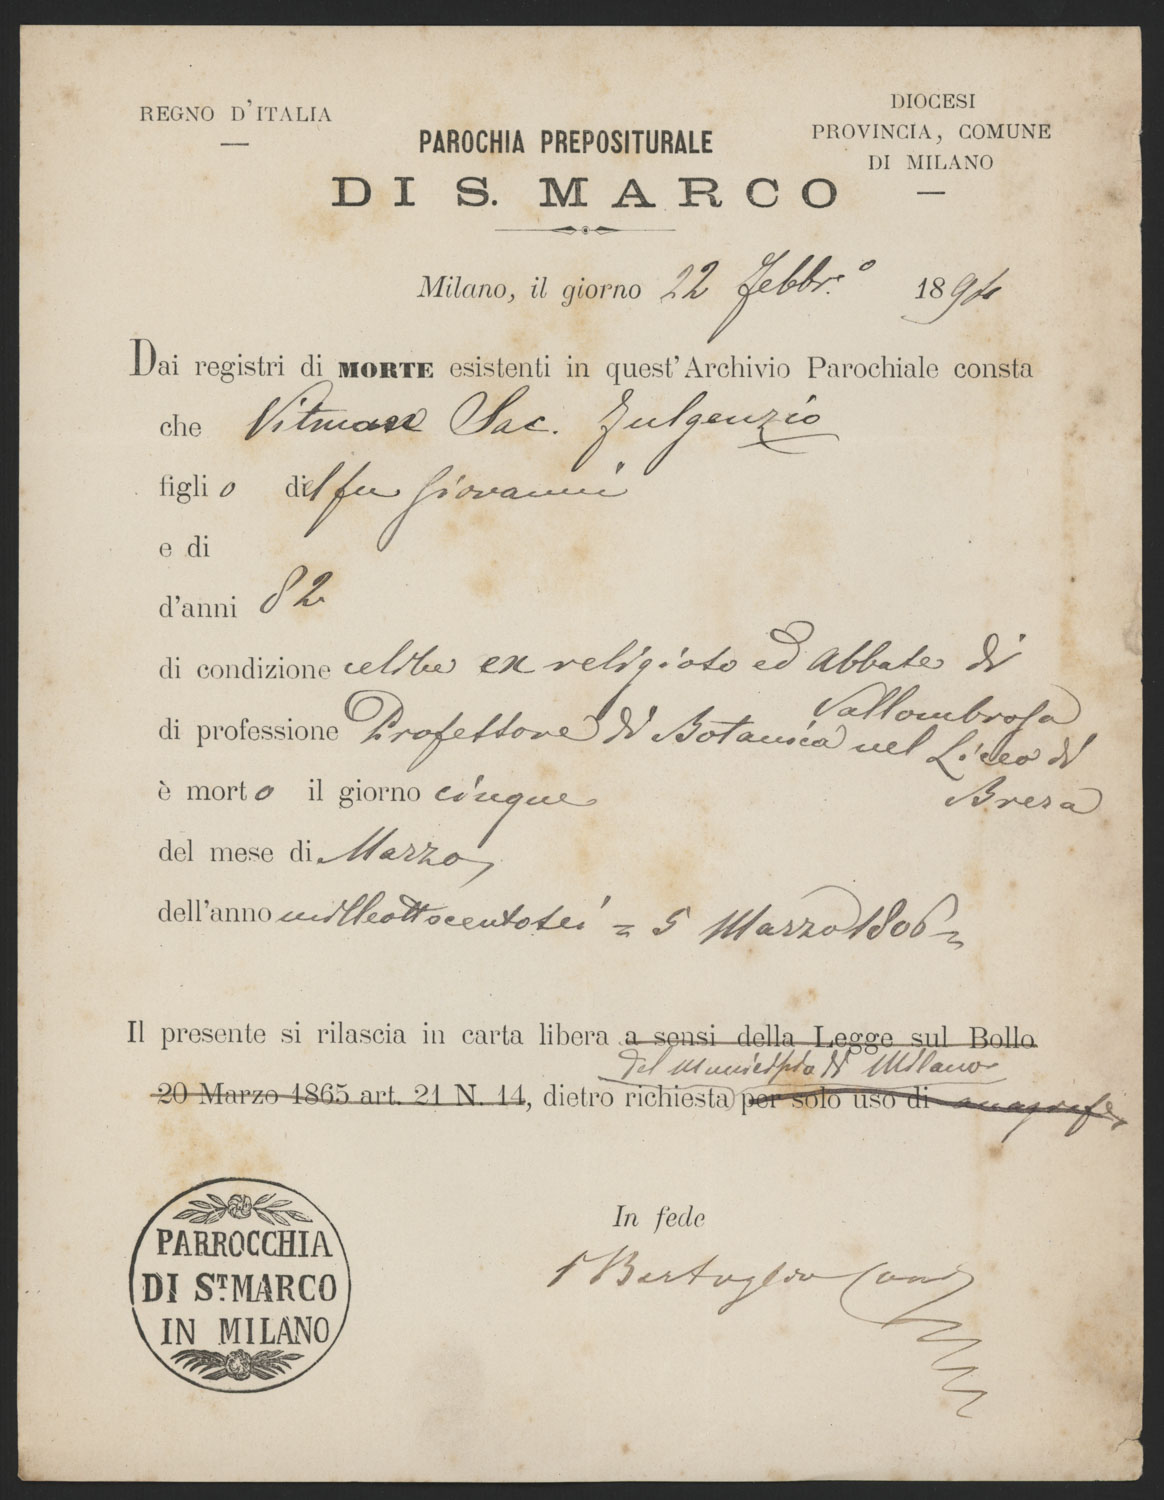 REGNO D'ITALIA
DIOCESI
PROVINCIA, COMUNE
DI MILANO
PAROCHIA PREPOSITURALE
DI S. MARCO
Milano, il giorno 22 Febbr.º 1894
Dai registri di MORTE esistenti in quest'Archivio Parochiale consta
che Vitman Sac. Fulgenzio
figlio del fu Giovanni
e di
d'anni 82
di condizione celibe ex religioso ed Abbate di
Vallombrosa
di professione Professore di Botanica nel Liceo di
Brera
è morto il giorno cinque
del mese di Marzo
dell'anno milleottocentosei = 5 Marzo 1806 =
Il presente si rilascia in carta libera a sensi della Legge sul Bollo
del Municipio di Milano
20 Marzo 1865 art. 21 N. 14, dietro richiesta per solo uso di anagrafe
In fede
PARROCCHIA
DI ST. MARCO
IN MILANO